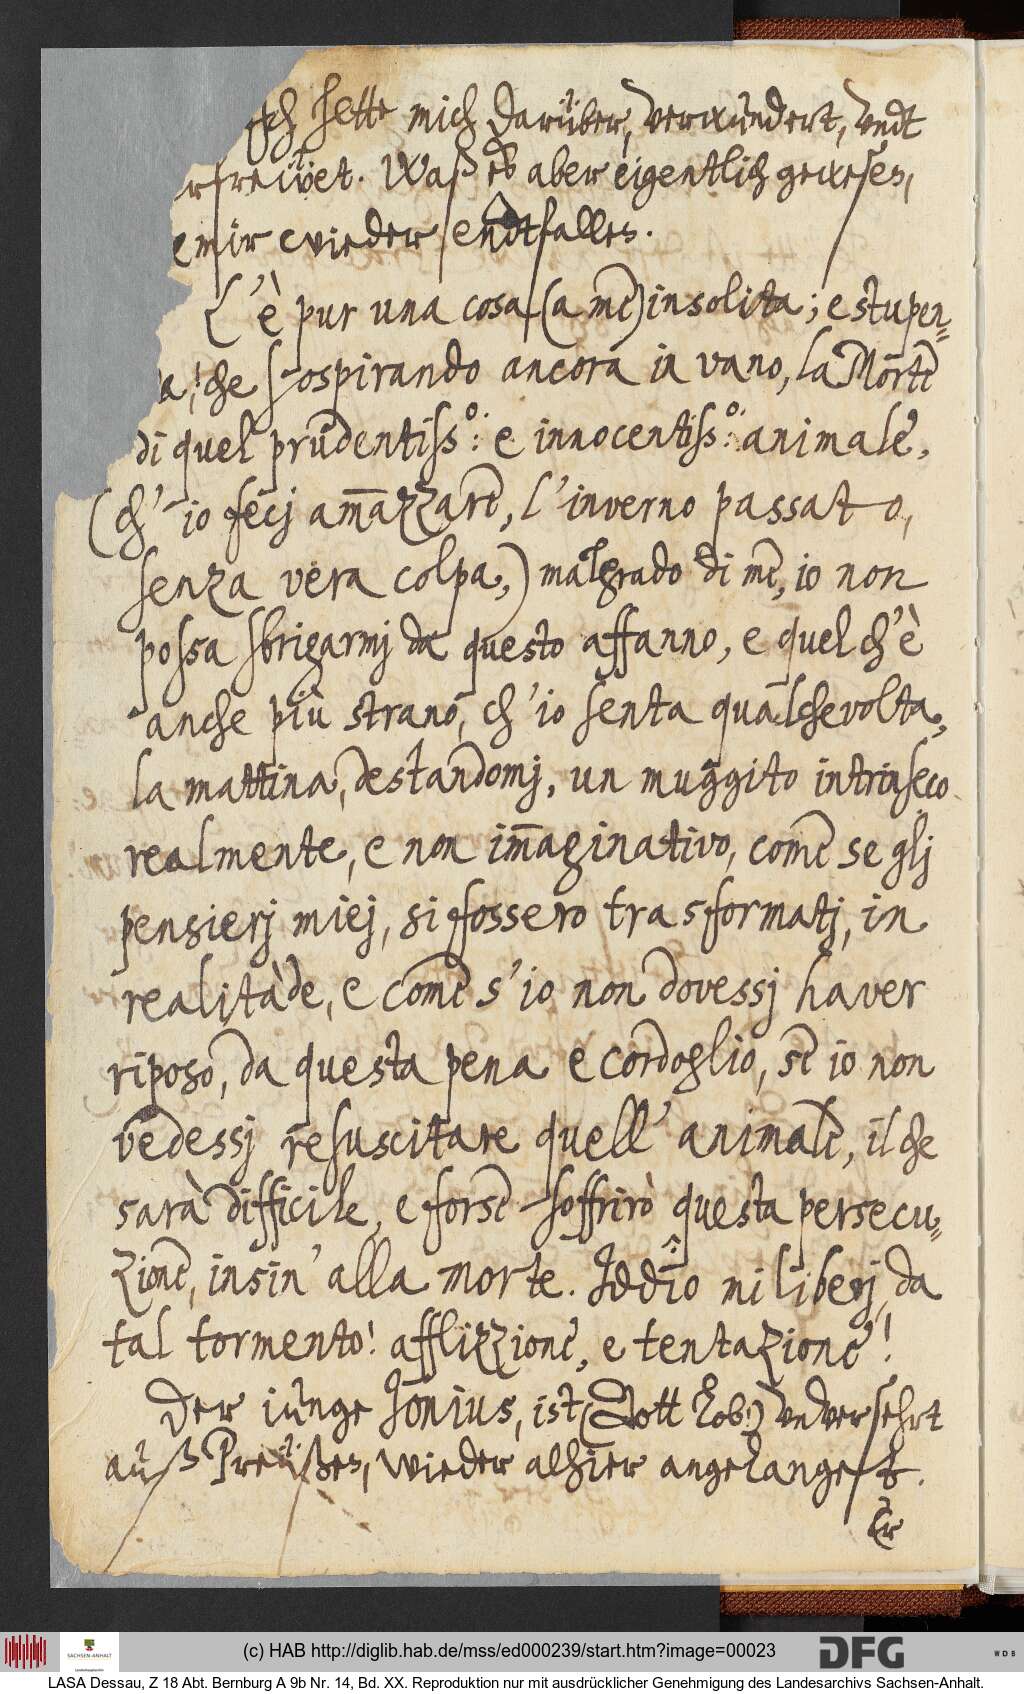 ich hette mich darüber, verwundert, vndt
erfreẅet. Waß es aber eigentlich gewesen,
mir wieder endtfallen.
L'è pur una cosa (a mè) insolita; e stupen=
a, che sospirando ancora in vano, la Morte
di quel prudentiss:o e innocentiss:o animale,
(ch' io fecj am̄azzare, l'inverno passato,
senza vera colpa,) malgrado di me, io non
possa sbrigarmj da questo affanno, e quel ch'è
anche più strano, ch'io senta qualchevolta,
la mattina, destandomj, un muggito intrinseco
realmente, e non im̄aginativo, come se glj
pensierj miej, si fossero trasformatj, in
realitàde, e come s'io non dovessj haver
riposo, da questa pena e cordoglio, se io non
vedessj resuscitare quell' animale, il che
sarà difficile, e forse soffrirò questa persecu=
zione, insin' alla morte. Iddîo mi liberj, da
tal tormento! afflizzione, e tentazione!
Der iunge Jonius, ist (Gott lob!) vndversehrt
auß Preüßen, wieder alhier angelanget.
Er
(c) HAB http://diglib.hab.de/mss/ed000239/start.htm?image=00023
SACHSEN-ANHALT
DFG
WDB
LASA Dessau, Z 18 Abt. Bernburg A 9b Nr. 14, Bd. XX. Reproduktion nur mit ausdrücklicher Genehmigung des Landesarchivs Sachsen-Anhalt.